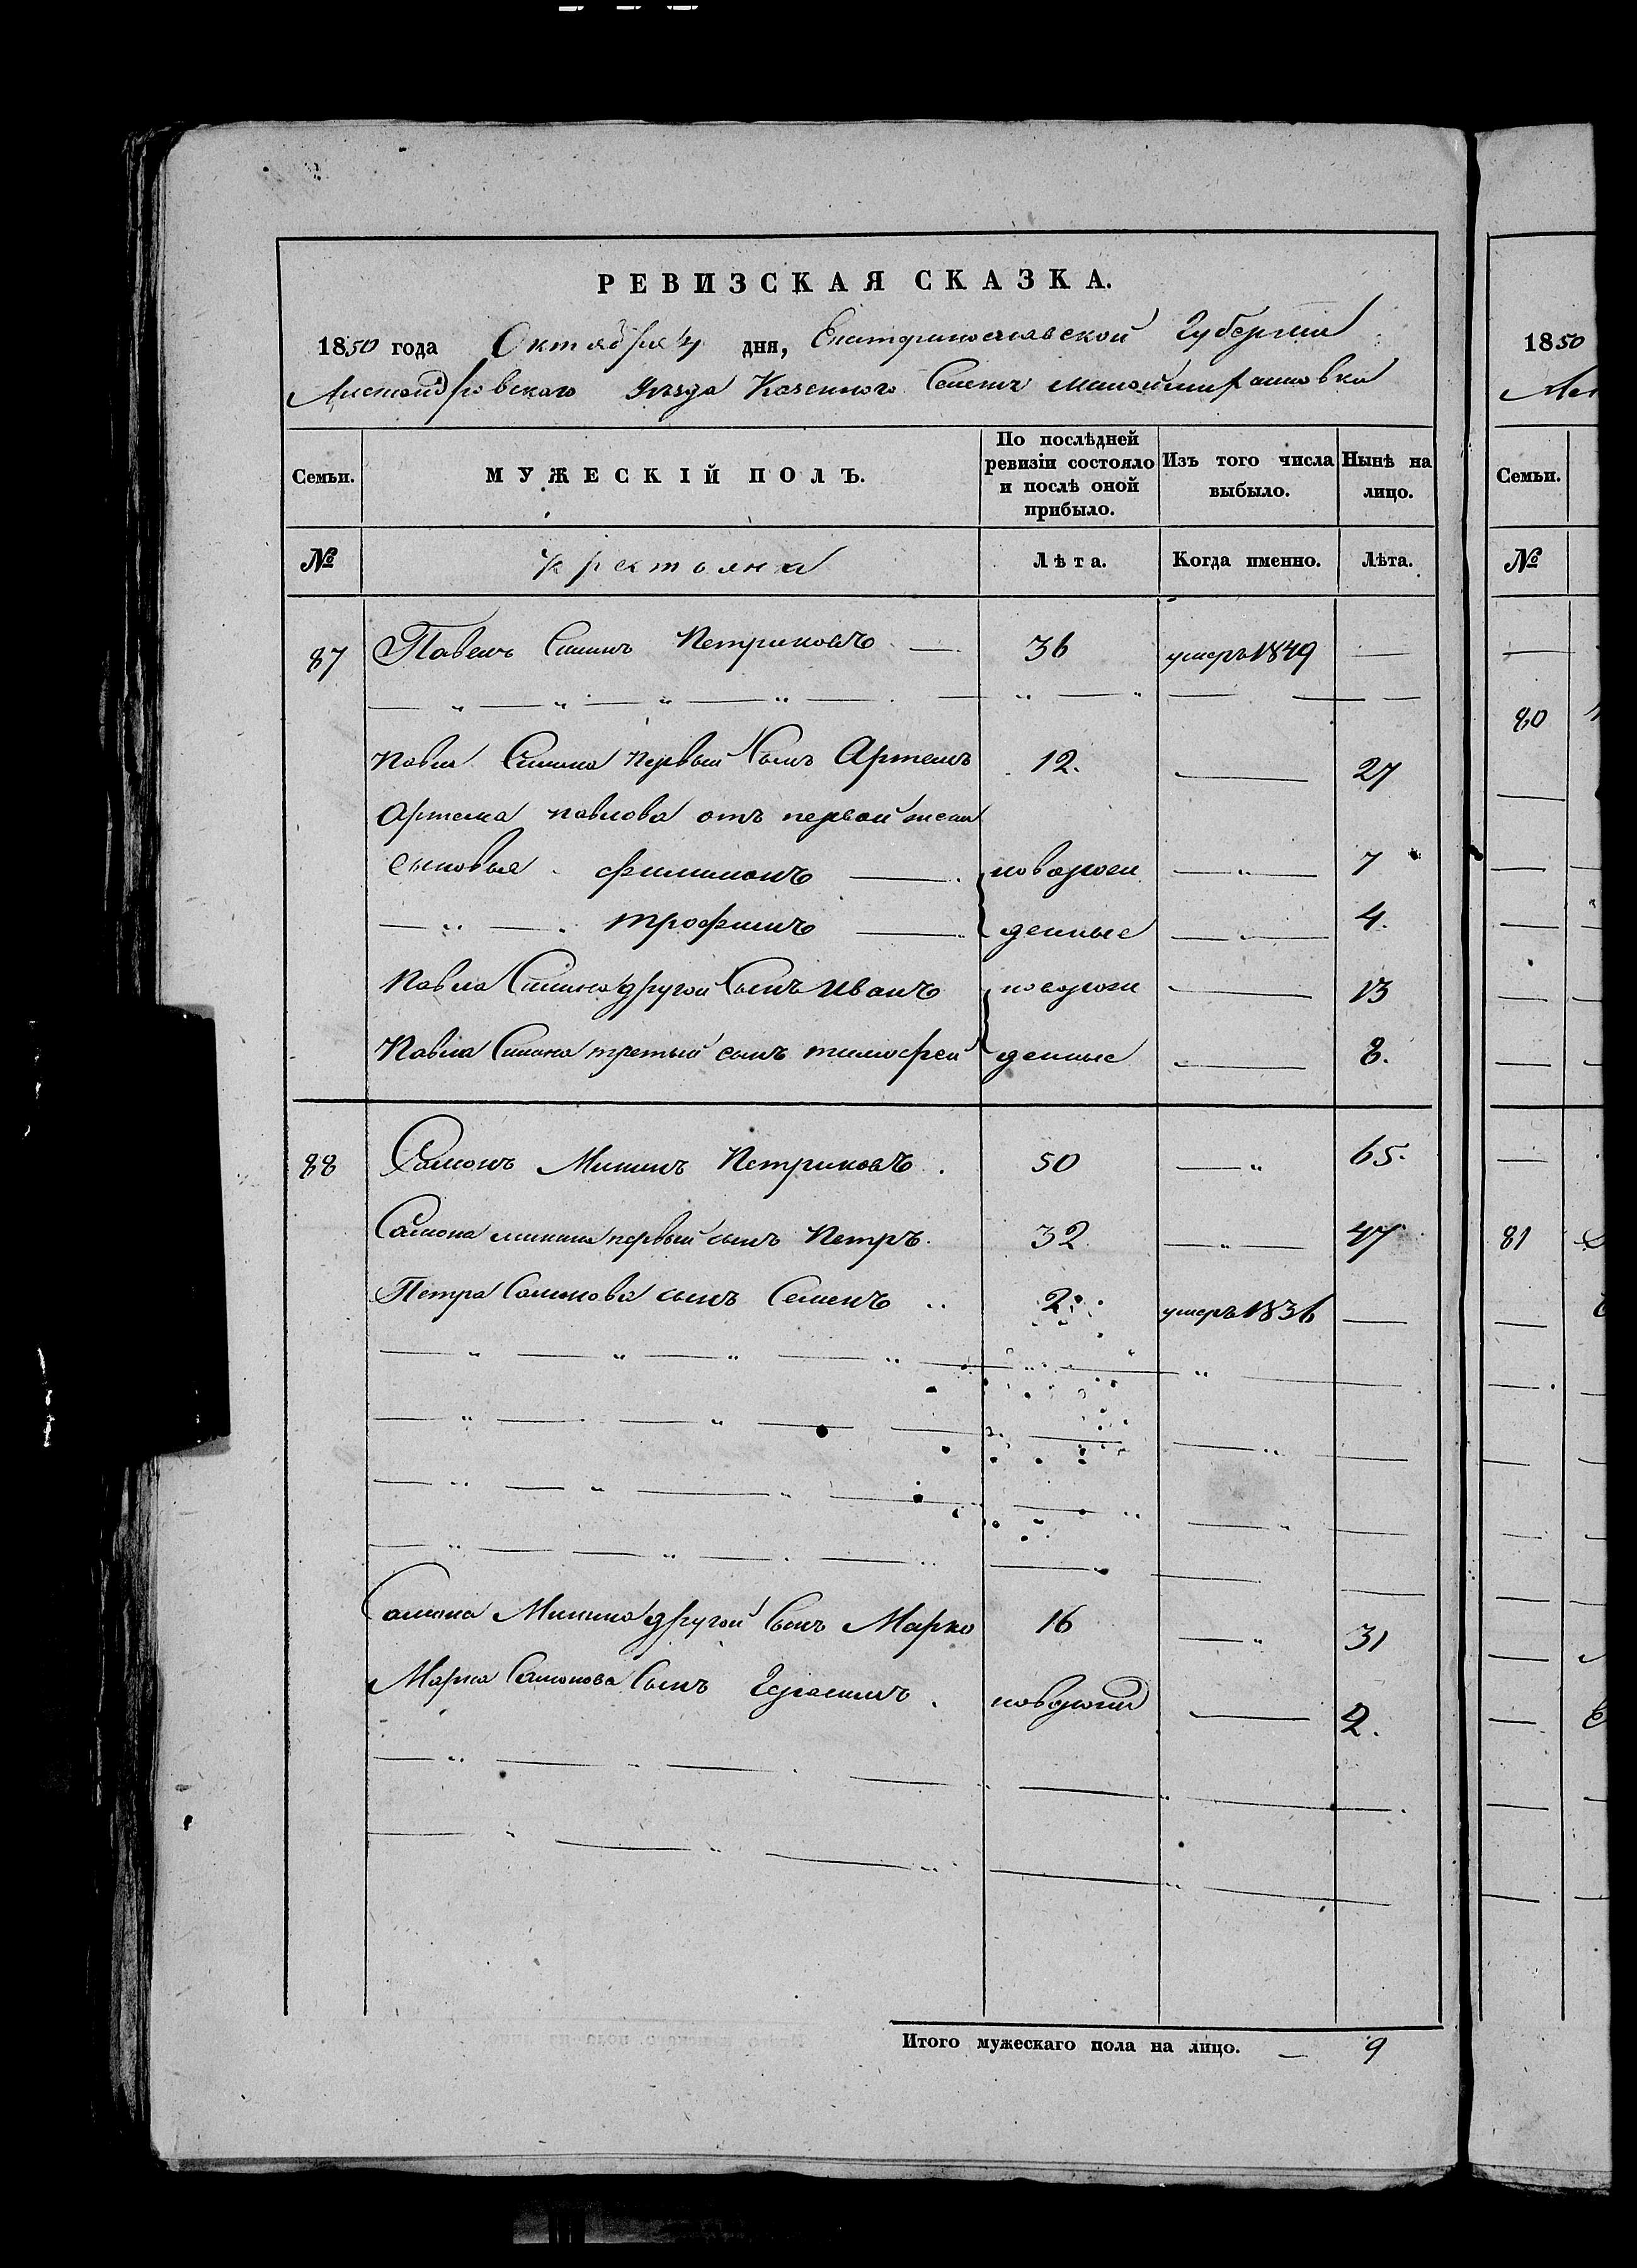 РЕВИЗСКАЯ СКАЗКА.
1850 года Октября 4 дня, Екатеринославской Губернии
Александровского Уезда Казенного Селения
Семьи.
МУЖЕСКІЙ ПОЛЪ.
По послѣдней ревизіи состояло и послѣ оной прибыло.
Изъ того числа выбыло.
Нынѣ на лицо.
№ Крестьяне Лѣта. Когда именно. Лѣта.
87 Павелъ Петриковъ 36 умеръ 1849
Павла первый сынъ Артемъ 12. 27
Артема Павлова отъ первой жены
сыновья Филимонъ новорож 7
Трофимъ денные 4.
Павла другой сынъ Иванъ новорож 13
Павла третый сынъ Тимофей денные 8.
88 Самонъ Мининъ Петриковъ. 50 65.
Самона Минина первый сынъ Петръ. 32 47
Петра Самонова сынъ Семенъ 2 умеръ 1836
Самона Минина другой сынъ Марко 16 31
Марка Самонова сынъ Герасимъ. новорож 2.
Итого мужескаго пола на лицо. 9
1850
Семьи.
№
80
81